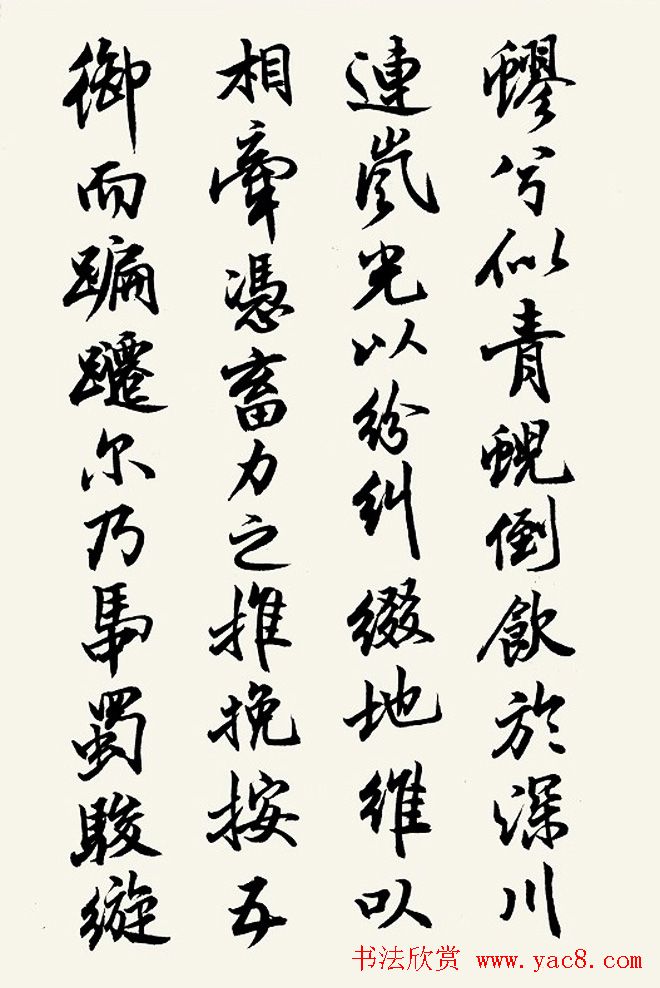 蟉兮似青蜺倒飲於深川
連嵐光以紛糾綴地維㕥
相牽憑畜力之推挽按五
御而蹁躚尔乃馽蜀駿縼
书法欣赏 www.yac8.com